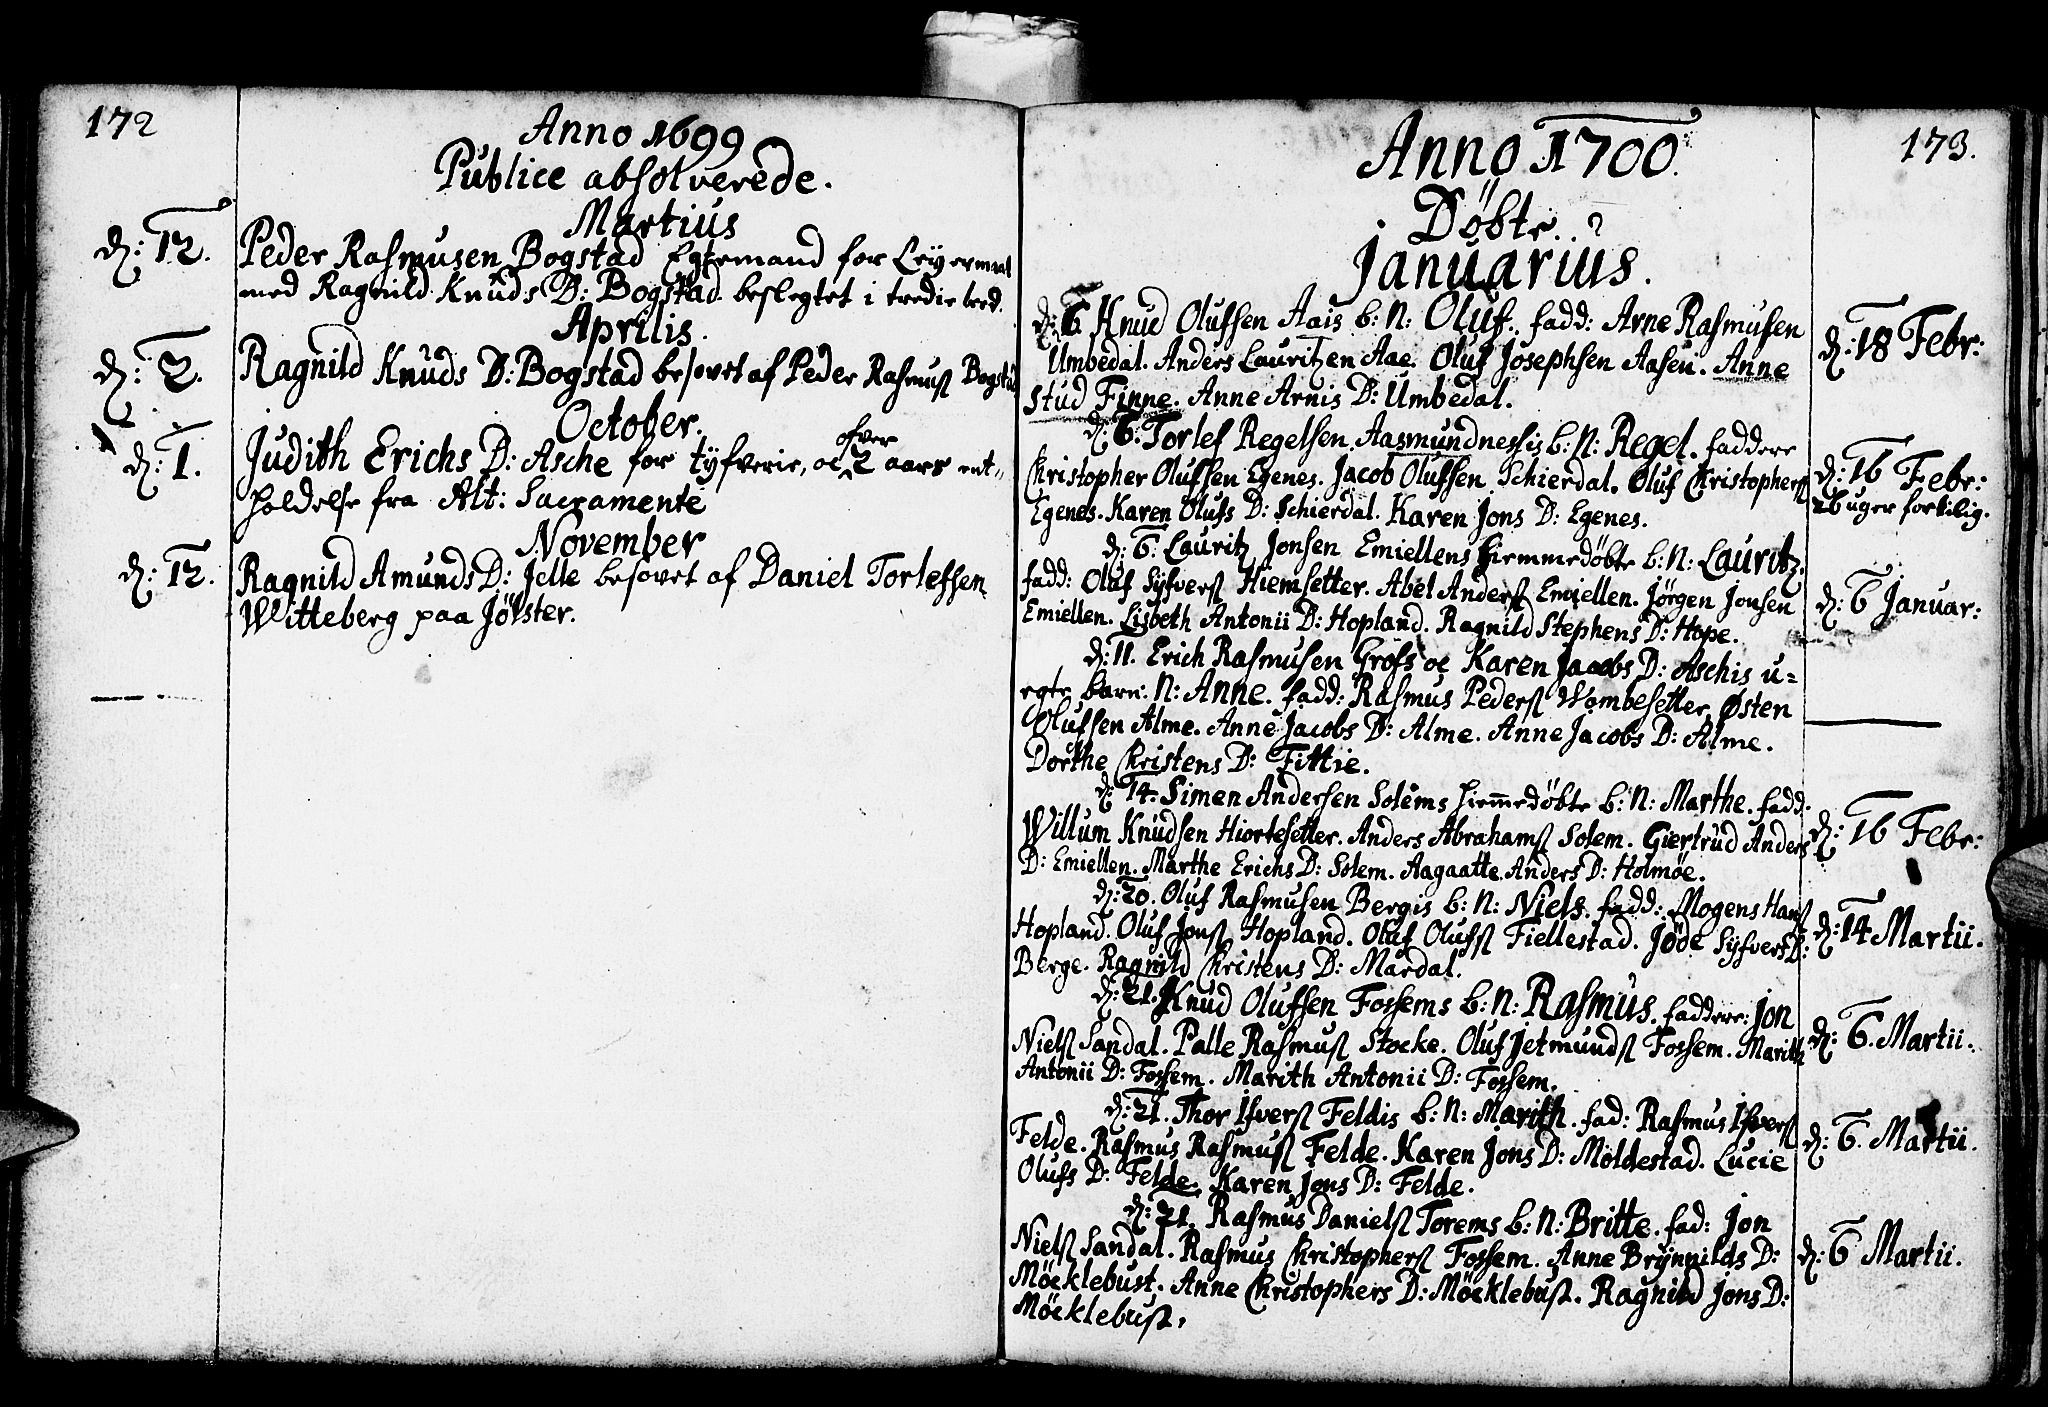 172
Anno 1699
Publice absolverede.
Martius
d: 12. Peder Rasmusen Bogstad Egtemand for Leyermaal
med Ragnild Knuds D: Bogstad beslegtet i tredie leed.
Aprilis.
d: 2. Ragnild Knuds D: Bogstad besovet af Peder Rasmus Bogstad
October.
d: 1. Judith Erichs D: Asche for tyfverie, oc ofver 2 aars ent-
holdelse fra Alt: Sacramente
November
d: 12. Ragnild Amunds D: Jelle besovet af Daniel Torlefsen
Witteberg paa Jølster.
173.
Anno 1700.
Døbte.
Januarius.
d: 6. Knud Olufsen Aais b: N: Oluf. fadd: Arne Rasmusen
Umbedal. Anders Lauritzen Aae. Oluf Josephsen Aasen. Anne
Stud Finne. Anne Arnis D: Umbedal.
d: 18 Febr:
d: 6. Torlef Regelsen Aasmundneshis b: N: Regel. faddere
Christopher Olufsen Egenes. Jacob Olufsen Schierdal. Oluf Christophers
Egenes. Karen Olufs D: Schierdal. Karen Jons D: Egenes.
d: 16 Febr:
26 uger fortilig.
d: 6. Lauritz Jonsen Emiellens hiemmedøbte b: N: Lauritz.
fadd: Oluf Syfvers Hiemsetter. Abel Anders Emiellen. Jørgen Jonsen
Emiellen. Lisbeth Antonii D: Hopland. Ragnild Stephens D: Hope.
d: 6 Januar:
d: 11. Erich Rasmusen Grofs oc Karen Jacobs D: Aschis u-
egte barn: N: Anne. fadd: Rasmus Peders Wombesetter. Østen
Olufsen Alme. Anne Jacobs D: Alme. Anne Jacobs D: Alme.
Dorthe Christens D: Fittie.
d: 14. Simen Andersen Solems hiemmedøbte b: N: Marthe. fadd.
Willum Knudsen Hiortesetter. Anders Abrahams Solem. Giertrud Anders
D: Emiellen. Marthe Erichs D: Solem. Aagaatte Anders D: Holmøe.
d: 16 Febr:
d: 20. Oluf Rasmusen Bergis b: N: Niels. fadd: Mogens Hans
Hopland. Oluf Jons Hopland. Oluf Olufs Fiellestad. Jøde Syfvers D:
Berge. Ragnild Christens D: Mardal.
d: 14 Martii.
d: 21. Knud Olufsen Fossems b: N: Rasmus. faddere: Jon
Niels Sandal. Palle Rasmus Stocke. Oluf Jetmunds Fossem. Marith
Antonii D: Fossem. Marith Antonii D: Fossem.
d: 6. Martii.
d: 21. Thor Ifvers Feldis b: N: Marith. fad: Rasmus Ifvers
Felde. Rasmus Rasmus Felde. Karen Jons D: Moldestad. Lucie
Olufs D: Felde. Karen Jons D: Felde.
d: 6. Martii.
d: 21. Rasmus Daniels Torems b: N: Britte. fad: Jon
Niels Sandal. Rasmus Christophers Fossem. Anne Brynnilds D:
Möcklebust. Anne Christophers D: Möcklebust. Ragnild Jons D:
Möcklebust.
d: 6 Martii.